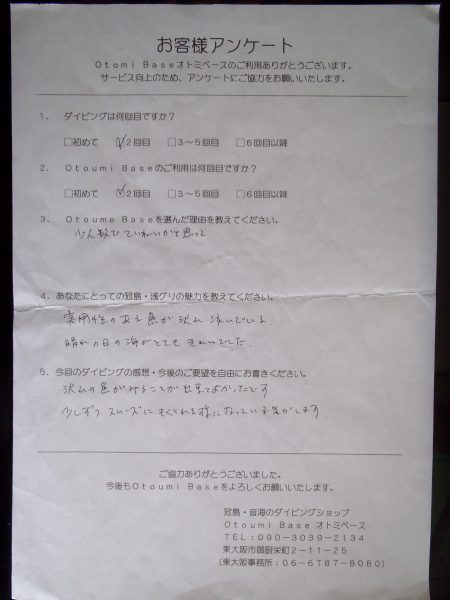 お客様アンケート
Otomi Baseオトミベースのご利用ありがとうございます。
サービス向上のため、アンケートにご協力をお願いいたします。
1. ダイビングは何回目ですか?
□初めて ☑2回目 □3〜5回目 □6回目以降
2. Otoumi Baseのご利用は何回目ですか?
□初めて ☑2回目 □3〜5回目 □6回目以降
3. Otoume Baseを選んだ理由を教えてください。
少人数で ていねいかと思って
4. あなたにとっての冠島・浅グリの魅力を教えてください。
のある魚が沢山 泳いでいる
晴れの日の海がとても きれいでした
5. 今回のダイビングの感想・今後のご要望を自由にお書きください。
沢山の魚がみることが出来てよかったです
少しずつ スムーズに もぐれる様になっている気がします
ご協力ありがとうございました。
今後もOtoumi Baseをよろしくお願いいたします。
冠島・音海のダイビングショップ
Otoumi Base オトミベース
TEL:090-3039-2134
東大阪市御厨栄町2-11-25
(東大阪事務所:06-6787-8080)